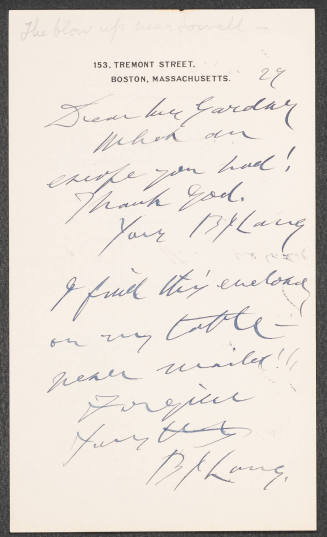 The blow up near Lowell –
153. TREMONT STREET.
BOSTON, MASSACHUSETTS.
29
Dear Mrs Gardner
What an
escape you had!
Thank God.
Yours B J Lang
I find this enclosed
on my table –
never mailed!!
Forgive
Yours
B J Lang.